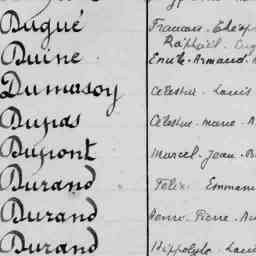 Dugué François-
Raphaël-
Duine Emile-Armand-
Dumasoy Célestin-Louis
Dupas Célestin-Marie-
Dupont Marcel-Jean-
Durand Félix-Emmanu
Durand Henri-Pierre-
Durand Hippolyte-Louis